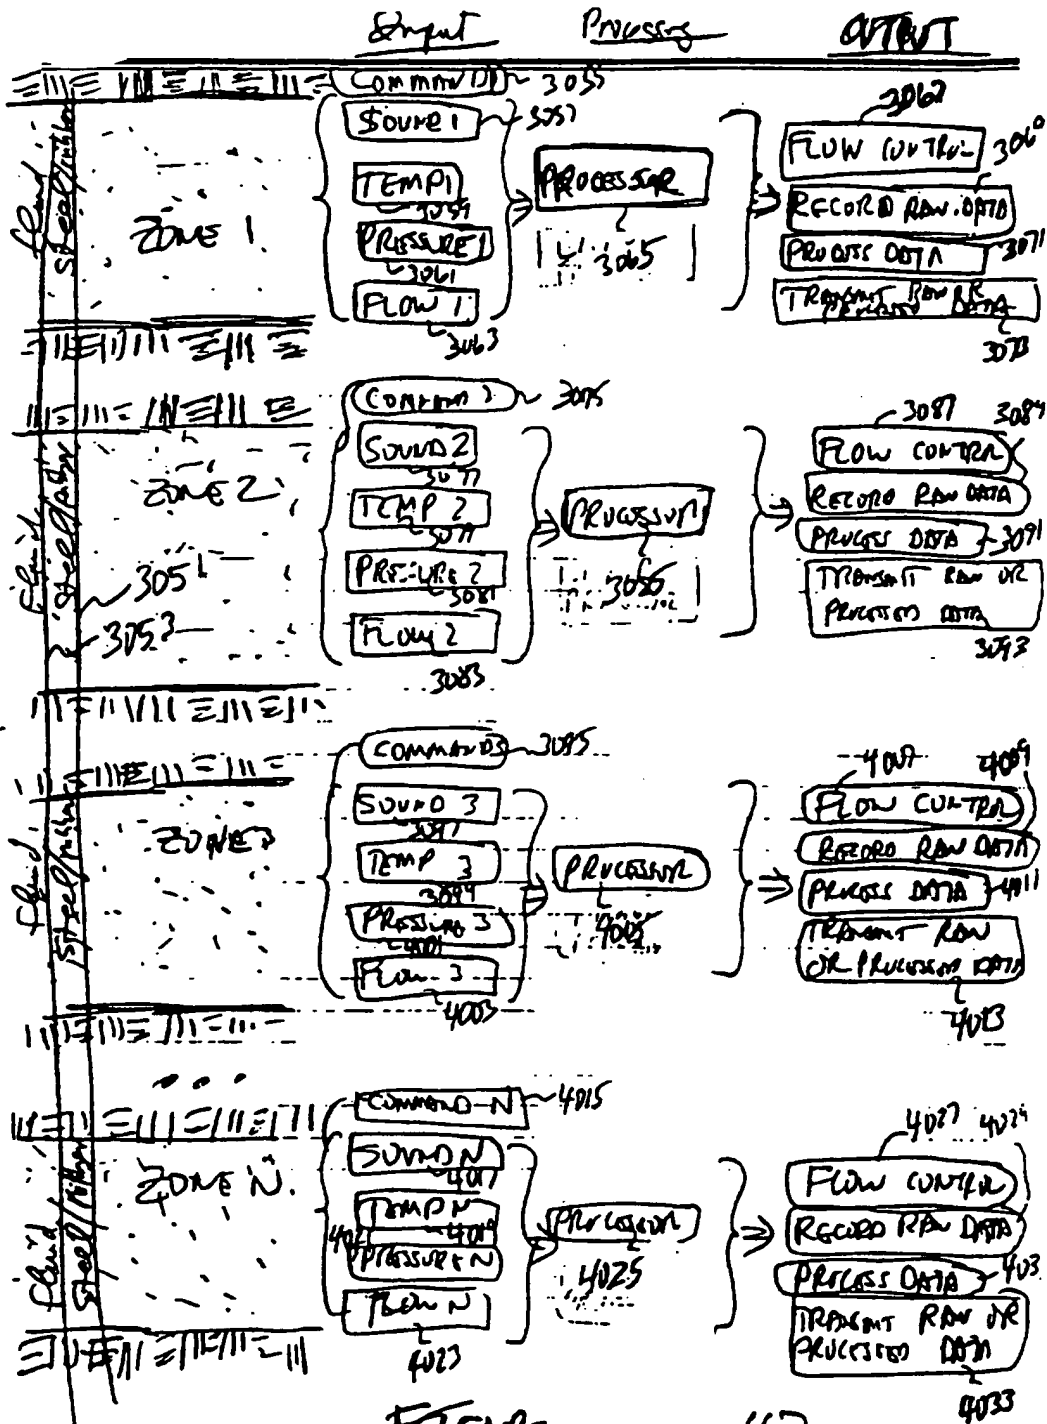 Input Processing OUTPUT
COMMAND 1 3055
SOUND 1 3057
TEMP 1
3059
PRESSURE 1
3061
FLOW 1
3063
PROCESSOR
3065
3067
FLOW CONTROL
3069
RECORD RAW DATA
PROCESS DATA 3071
TRANSMIT RAW OR
PROCESSED DATA
3073
ZONE 1
fluid
Steel
COMMAND 2 3075
SOUND 2
3077
TEMP 2
3079
PRESSURE 2
3081
FLOW 2
3083
PROCESSOR
3085
3087 3089
FLOW CONTROL
RECORD RAW DATA
PROCESS DATA 3091
TRANSMIT RAW OR
PROCESSED DATA
3093
ZONE 2
3051
3053
fluid
Steel
COMMAND 3 3095
SOUND 3
3097
TEMP 3
3099
PRESSURE 3
4001
FLOW 3
4003
PROCESSOR
4005
4007 4009
FLOW CONTROL
RECORD RAW DATA
PROCESS DATA 4011
TRANSMIT RAW
OR PROCESSED DATA
4013
ZONE 3
fluid
Steel
COMMAND N 4015
SOUND N
4017
TEMP N
4019
4021
PRESSURE N
FLOW N
4023
PROCESSOR
4025
4027 4029
FLOW CONTROL
RECORD RAW DATA
PROCESS DATA 4031
TRANSMIT RAW OR
PROCESSED DATA
4033
ZONE N
fluid
Steel